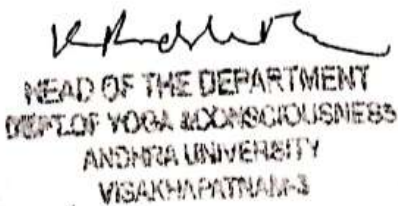 HEAD OF THE DEPARTMENT
DEPT.OF YOGA &CONSCIOUSNESS
ANDHRA UNIVERSITY
VISAKHAPATNAM-3